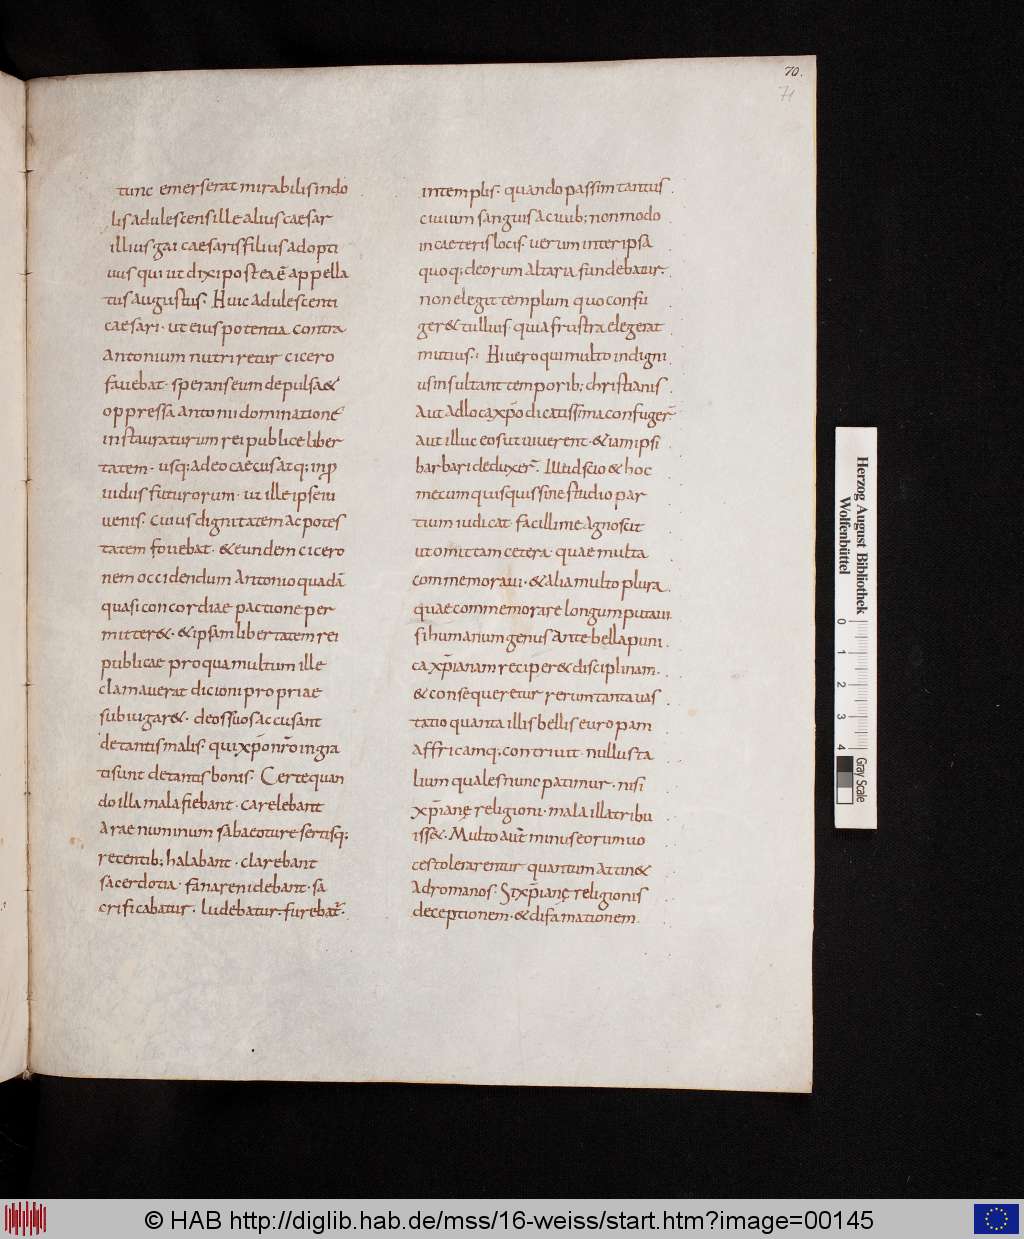 70.
71
tunc emerserat mirabilis indo
lis adulescens ille alius caesar
illius gai caesaris filius adopti
uus qui ut dixi postea ē appella
tus augustus. Huic adulescenti
caesari· ut eius potentia contra
antonium nutriretur cicero
fauebat· sperans eum depulsa &
oppressa antonii dominatione
instauraturum rei publice liber
tatem· usq; adeo caecus atq; inp
uidus futurorum· ut ille ipse iu
uenis· cuius dignitatem ac potes
tatem fouebat· & eundem cicero
nem occidendum antonio quadā
quasi concordiae pactione per
mitter&· & ipsam libertatem rei
publicae pro qua multum ille
clamauerat dicioni propriae
subiugar&· deos suos accusant
de tantis malis· qui xp̄o nr̄o ingra
ti sunt de tantis bonis. Certe quan
do illa mala fiebant· carelebant
arae numinum sabaeo ture sertisq;
recentib; halabant· clarebant
sacerdotia· fana renidebant· sa
crificabatur· ludebatur· furebat̄·
in templis· quando passim tantus
ciuium sanguis a ciuib; non modo
in caeteris locis· uerum inter ipsa
quoq; deorum altaria fundebatur·
non elegit templum quo confu
ger& tullius· quia frustra elegerat
mutius· Hi uero qui multo indigni
us insultant temporib; christianis
aut ad loca xp̄o dicatissima confuger̄
aut illuc eos ut uiuerent· & iam ipsi
barbari deduxer̄. Illud scio & hoc
mecum quisquis sine studio par
tium iudicat facillime agnoscit
ut omittam cetera· quae multa
commemoraui· & alia multo plura
quae commemorare longum putaui
si humanum genus ante bella puni
ca xp̄ianam reciper& disciplinam·
& consequeretur rerum tanta uas
tatio quanta illis bellis europam
affricamq; contriuit· nullus ta
lium quales nunc patimur· nisi
xp̄iane religioni· mala illa tribu
iss&· Multo aut̄ minus eorum uo
ces tolerarentur quantum attin&
ad romanos· Si xp̄iane religionis
deceptionem· & difamationem
Herzog August Bibliothek
Wolfenbüttel
0 1 2 3 4
Gray Scale
© HAB http://diglib.hab.de/mss/16-weiss/start.htm?image=00145